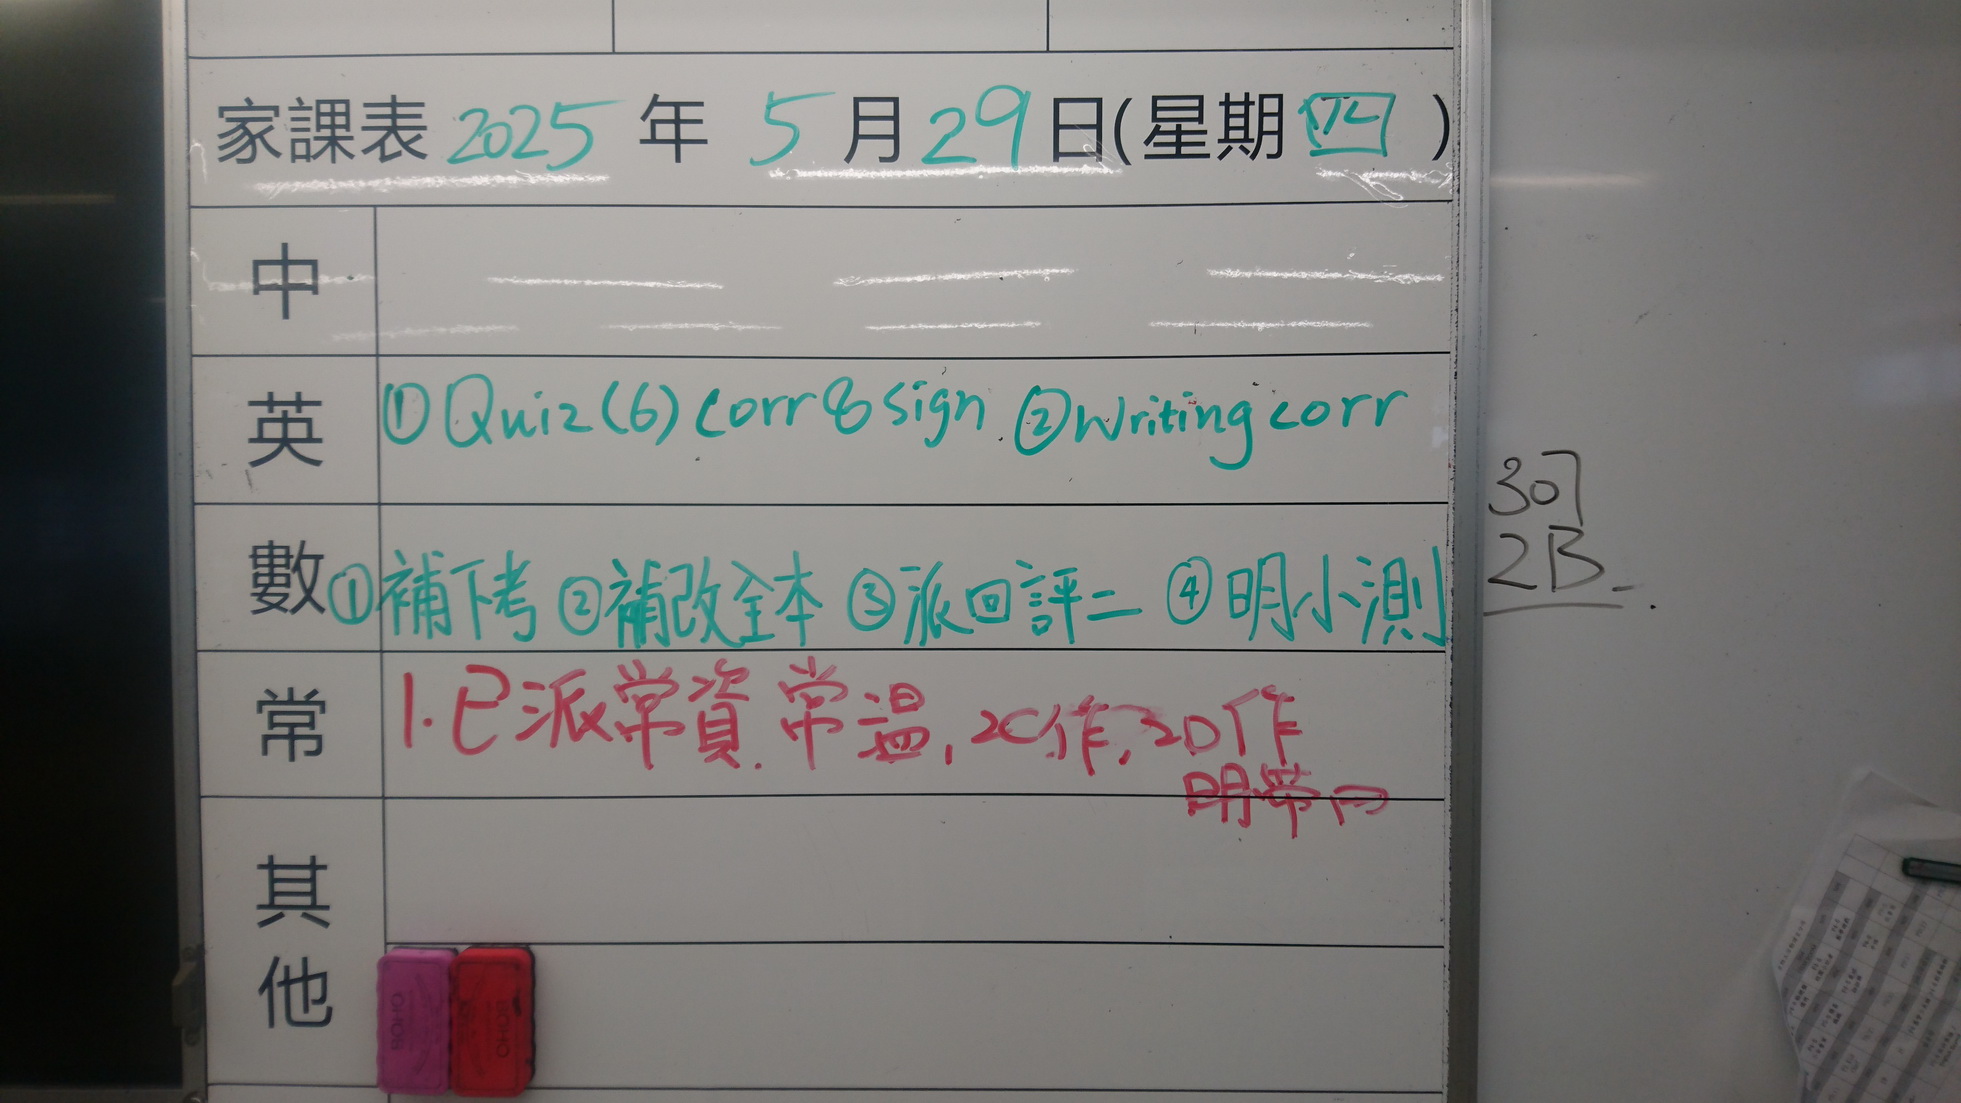 家課表 2025 年 5 月 29 日(星期四)
中
英 ①Quiz(6) corr & sign ②Writing corr
數 ①補下考 ②補改全本 ③派回評二 ④明小測
常 1.已派常資.常溫, 2C作, 2D作
明帶回
其他
307
2B